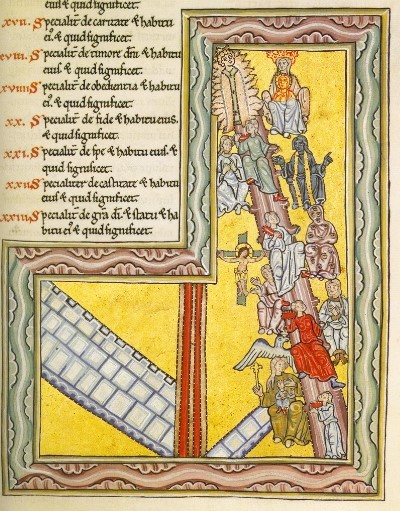 eius & quid significet.
xvii. Specialit̅ de caritate & habitu
ei᷒. & quid significet.
xviii. Specialit̅ de timore dn̅i & habitu
eius. & quid significet.
xviiii. Specialit̅ de obedientia & habitu
ei᷒. & quid significet.
xx. Specialit̅ de fide & habitu eius.
& quid significet.
xxi. Specialit̅ de spe & habitu eius. &
quid significet.
xxii. Specialiter de castitate & habitu
eius & quid significet.
xxiii. Specialit̅ de gr̅a di̅. & statu & ha
bitu ei᷒ & quid significet.